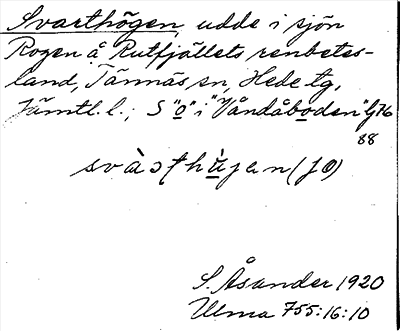 Svarthögen, udde i sjön
Rogen å Rutfjällets renbetes-
land, Tännäs sn, Hede tg,
Jämtl. l.; S "o" i "Våndåboden" Gj76
88
svàɔʃthùgen (jo)
S. Åsander 1920
Ulma 755:16:10